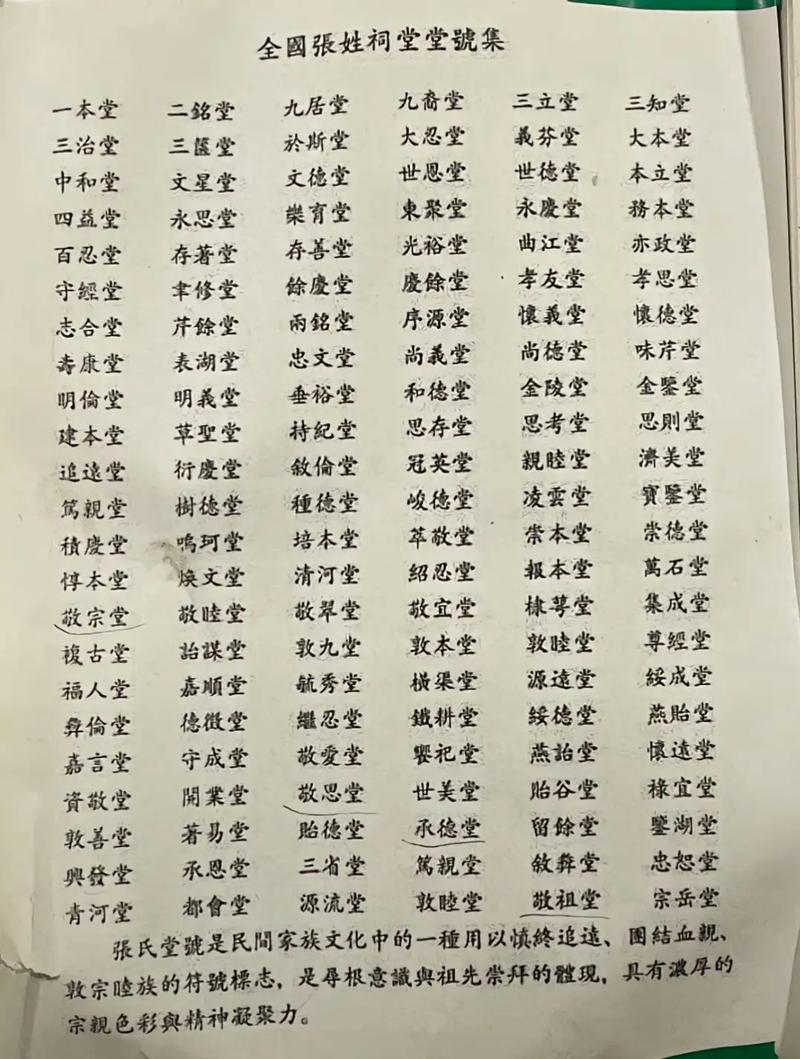 全國張姓祠堂堂號集
一本堂 二銘堂 九居堂 九裔堂 三立堂 三知堂
三治堂 三篋堂 於斯堂 大忍堂 義芬堂 大本堂
中和堂 文星堂 文德堂 世恩堂 世德堂 本立堂
四益堂 永思堂 樂育堂 東聚堂 永慶堂 務本堂
百忍堂 存著堂 存善堂 光裕堂 曲江堂 亦政堂
守經堂 聿修堂 餘慶堂 慶餘堂 孝友堂 孝思堂
志合堂 芹餘堂 兩銘堂 序源堂 懷義堂 懷德堂
壽康堂 表湖堂 忠文堂 尚義堂 尚德堂 味芹堂
明倫堂 明義堂 垂裕堂 和德堂 金陵堂 金鑒堂
建本堂 草聖堂 持紀堂 思存堂 思考堂 思則堂
追遠堂 衍慶堂 敘倫堂 冠英堂 親睦堂 濟美堂
篤親堂 樹德堂 種德堂 峻德堂 凌雲堂 寶鑒堂
積慶堂 鳴珂堂 培本堂 萃敬堂 崇本堂 崇德堂
惇本堂 煥文堂 清河堂 紹忍堂 報本堂 萬石堂
敬宗堂 敬睦堂 敬翠堂 敬宜堂 棣萼堂 集成堂
複古堂 詒謀堂 敦九堂 敦本堂 敦睦堂 尊經堂
福人堂 嘉順堂 毓秀堂 橫渠堂 源遠堂 綏成堂
彝倫堂 德徵堂 繼忍堂 鐵耕堂 綏德堂 燕貽堂
嘉言堂 守成堂 敬愛堂 饗祀堂 燕詒堂 懷遠堂
資敬堂 開業堂 敬思堂 世美堂 貽谷堂 祿宜堂
敦善堂 著易堂 貽德堂 承德堂 留餘堂 鑒湖堂
興發堂 承恩堂 三省堂 篤親堂 敘彝堂 忠恕堂
青河堂 都會堂 源流堂 敦睦堂 敬祖堂 宗岳堂
張氏堂號是民間家族文化中的一種用以慎終追遠、團結血親、
敦宗睦族的符號標志，是尋根意識與祖先崇拜的體現，具有濃厚的
宗親色彩與精神凝聚力。